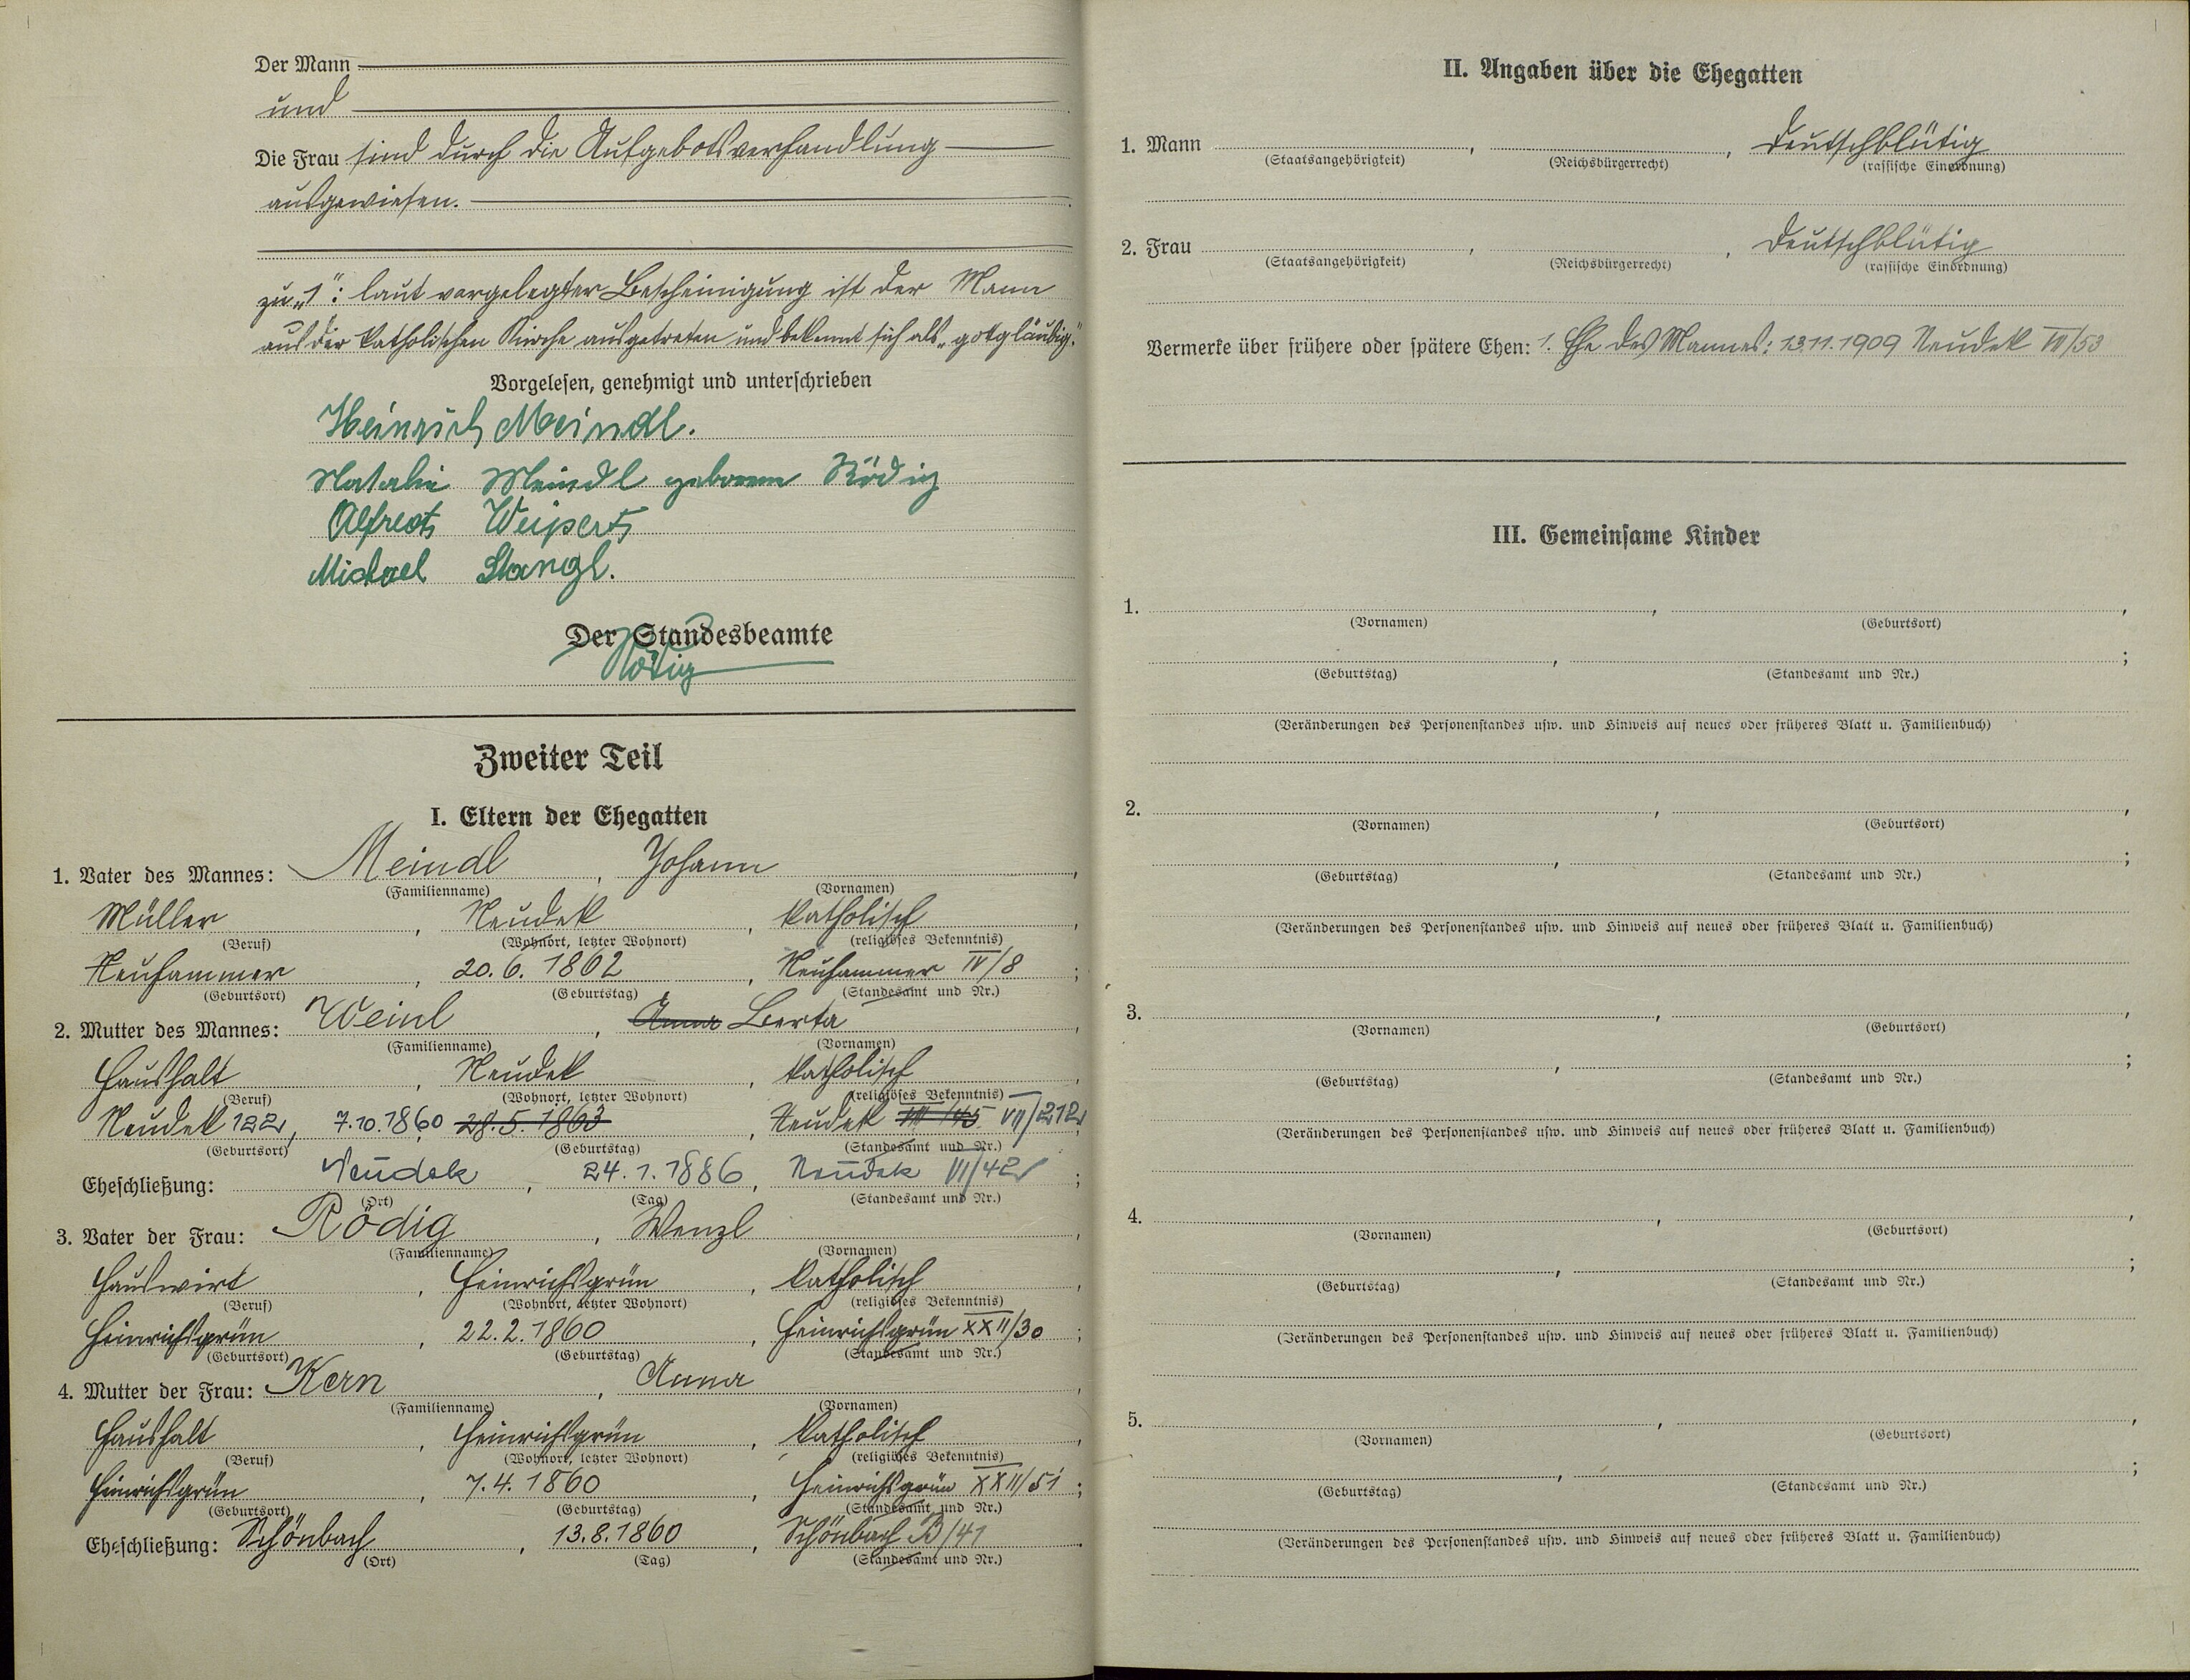 Der Mann
und
Die Frau sind durch die Aufgebotsverhandlung
ausgewiesen.
zu „1“: laut vorgelegter Bescheinigung ist der Mann
aus der katholischen Kirche ausgetreten und bekennt sich als „gottgläubig.“
Vorgelesen, genehmigt und unterschrieben
Heinrich Meindl.
Natalie Meindl geborene Rödig
Alfred Weipert
Michael Stangl.
Der Standesbeamte
Zweiter Teil
I. Eltern der Ehegatten
1. Vater des Mannes: Meindl, Johann,
(Familienname) (Vornamen)
Müller, Neudek, katholisch,
(Beruf) (Wohnort, letzter Wohnort) (religiöses Bekenntnis)
Neuhammer, 20. 6. 1862, Neuhammer IV/8;
(Geburtsort) (Geburtstag) (Standesamt und Nr.)
2. Mutter des Mannes: Weinl, Anna Berta,
(Familienname) (Vornamen)
Haushalt, Neudek, katholisch,
(Beruf) (Wohnort, letzter Wohnort) (religiöses Bekenntnis)
Neudek 122, 7.10.1860 28.5.1863, Neudek VII/145 VII/212;
(Geburtsort) (Geburtstag) (Standesamt und Nr.)
Eheschließung: Neudek, 24. 1. 1886, Neudek VI/42;
(Ort) (Tag) (Standesamt und Nr.)
3. Vater der Frau: Rödig, Wenzl,
(Familienname) (Vornamen)
Hauswirt, Heinrichsgrün, katholisch,
(Beruf) (Wohnort, letzter Wohnort) (religiöses Bekenntnis)
Heinrichsgrün, 22. 2. 1860, Heinrichsgrün XXII/30;
(Geburtsort) (Geburtstag) (Standesamt und Nr.)
4. Mutter der Frau: Kern, Anna,
(Familienname) (Vornamen)
Haushalt, Heinrichsgrün, katholisch,
(Beruf) (Wohnort, letzter Wohnort) (religiöses Bekenntnis)
Heinrichsgrün, 7. 4. 1860, Heinrichsgrün XXII/51;
(Geburtsort) (Geburtstag) (Standesamt und Nr.)
Eheschließung: Schönbach, 13. 8. 1860, Schönbach B/41.
(Ort) (Tag) (Standesamt und Nr.)
II. Angaben über die Ehegatten
1. Mann , , deutschblütig
(Staatsangehörigkeit) (Reichsbürgerrecht) (rassische Einordnung)
2. Frau , , deutschblütig
(Staatsangehörigkeit) (Reichsbürgerrecht) (rassische Einordnung)
Vermerke über frühere oder spätere Ehen: 1. Ehe des Mannes: 13.11.1909 Neudek IX/53
III. Gemeinsame Kinder
1. , ,
(Vornamen) (Geburtsort)
, ;
(Geburtstag) (Standesamt und Nr.)
(Veränderungen des Personenstandes usw. und Hinweis auf neues oder früheres Blatt u. Familienbuch)
2. , ,
(Vornamen) (Geburtsort)
, ;
(Geburtstag) (Standesamt und Nr.)
(Veränderungen des Personenstandes usw. und Hinweis auf neues oder früheres Blatt u. Familienbuch)
3. , ,
(Vornamen) (Geburtsort)
, ;
(Geburtstag) (Standesamt und Nr.)
(Veränderungen des Personenstandes usw. und Hinweis auf neues oder früheres Blatt u. Familienbuch)
4. , ,
(Vornamen) (Geburtsort)
, ;
(Geburtstag) (Standesamt und Nr.)
(Veränderungen des Personenstandes usw. und Hinweis auf neues oder früheres Blatt u. Familienbuch)
5. , ,
(Vornamen) (Geburtsort)
, ;
(Geburtstag) (Standesamt und Nr.)
(Veränderungen des Personenstandes usw. und Hinweis auf neues oder früheres Blatt u. Familienbuch)